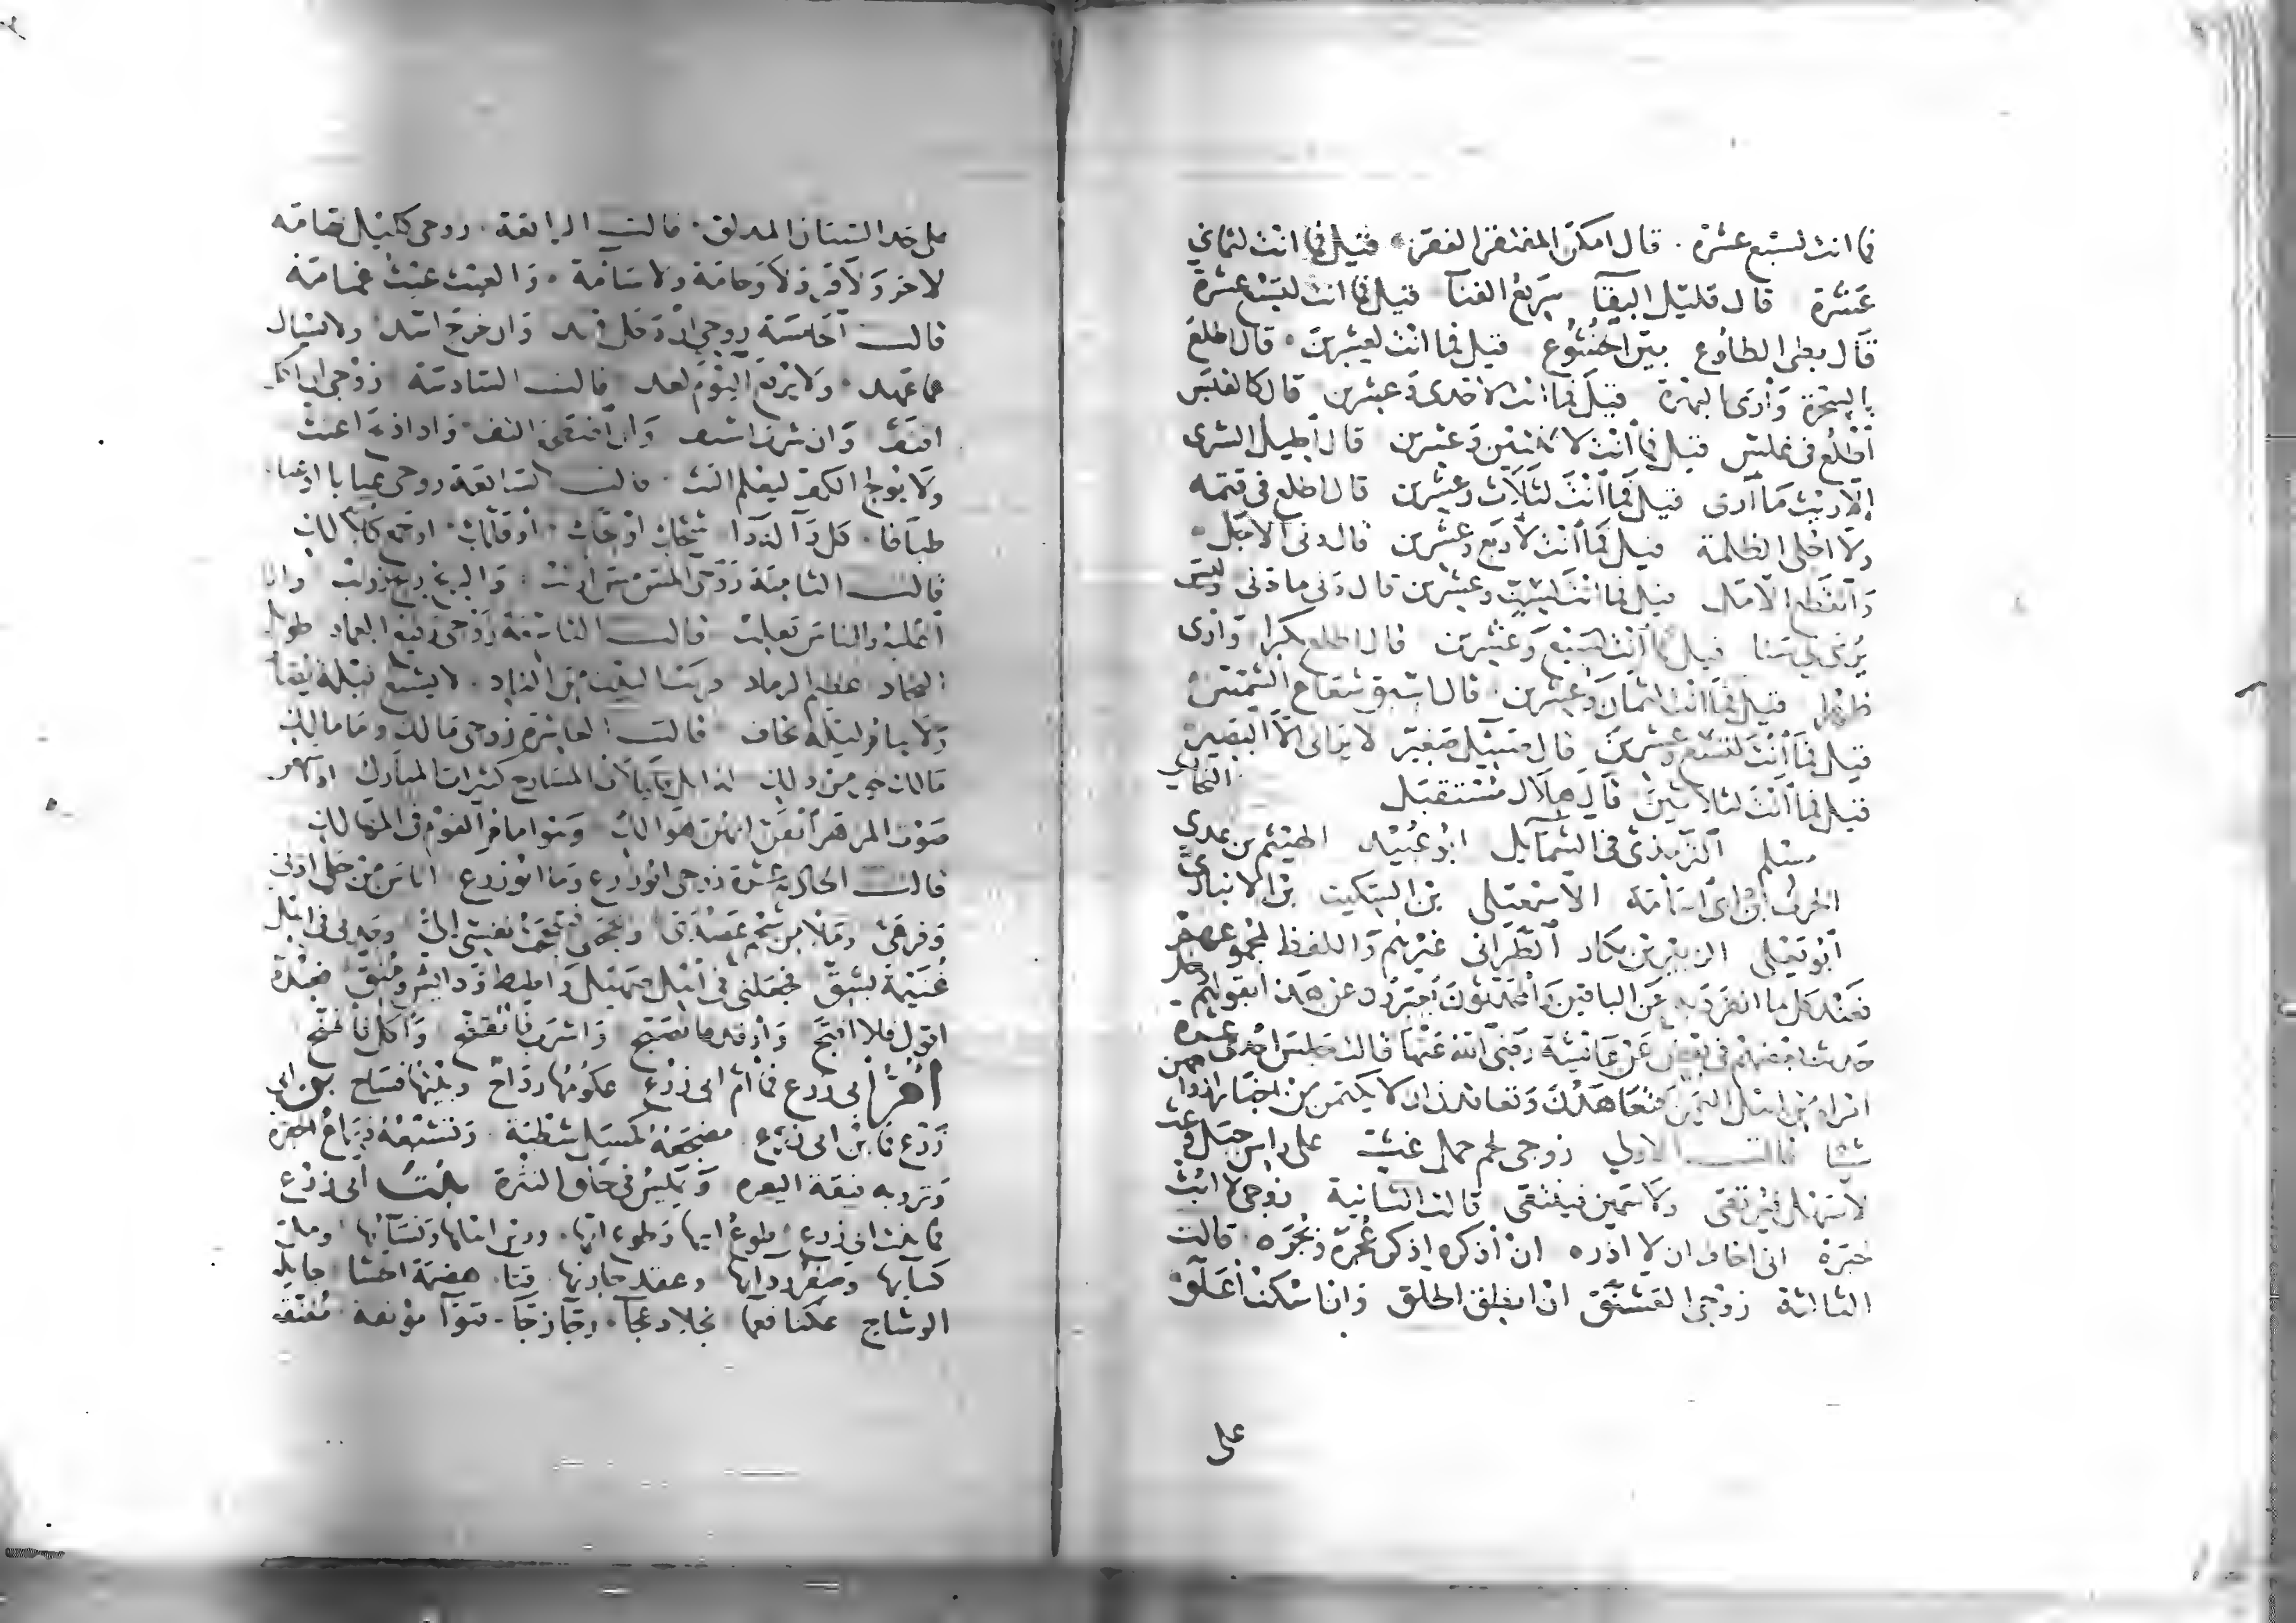 فما انت لسبع عشرة . قال امكن المقتفر الفقره قيل فما انت لثماني
عشرة قال قليل البقآ سريع الفنآ قيل فما انت لتسع عشرة
قال بطى الطلوع بين الخشوع قيل فما انت لعشرين . قال اطلع
بالسحرة وارى بالبهرة قيل فما انت لاحدى وعشرين قال كالقبس
اطلع فى غلس قيل فما انت لاثنتين وعشرين قال اطيل السرى
إلا ريث ما أرى قيل فما أنت لثلاث وعشرين قال اطلع فى قتمه
ولا اجلى الظلمة قيل فما انت لاربع وعشرين قال دنى الاجل
وانقطع الامل قيل فما انت لست وعشرين قال دنى ما دنى وليس
يرى لى سنا قيل فما انت لسبع وعشرين قال اطلع بكرا وارى
ظهرا قيل فما انت لثمان وعشرين . قال اسبق شعاع الشمس
قيل فما أنت لتسع وعشرين قال ضئيل صغير لا يرانى الا البصير
قيل فما أنت لثلاثين قال هلال مستقبل البخاري
مسلم الترمذى فى الشمايل ابو عبيد الهيثم بن عدي
الحرث بن ابى اسامة الاسمعيلى بن السكيت بن الانبارى
ابو يعلى الزبير بن بكار الطبرانى غيرهم واللفظ لمجموعهم
فعند كل ما انفرد به عن الباقين والمحدثون يعبرون عن هذا بقولهم دخل
حديث بعضهم فى بعض عن عائشة رضى الله عنها قالت جلس احدى عشره
امراة من اهل اليمن فتعاهدن وتعاقدن ان لا يكتمن من اخبار ازواجهن
شيئا قالت الاولي زوجى لحم جمل غث على راس جبل وعث
لا سهل فيرتقى ولا سمين فينتقى قالت الثانية زوجى لا ابث
خبره انى اخاف ان لا اذره ان اذكره اذكر عجره وبجره . قالت
الثالثة زوجى العشنق ان انطق اطلق وان اسكت أعلق
على
على حد السنان المدلق . قالت الرابعة . زوجى كليل تهامه
لا حر ولا قر ولا وخامة ولا سآمة . والغيث غيث غمامة
قالت الخامسة زوجى ان دخل فهد وان خرج اسد ولا يسال
عما عهد . ولا يرفع اليوم لغد قالت السادسة زوجى ان اكل
اقتف وان شرب اشتف وان اضطجع التف . واذا ذبح اغتث
ولا يولج الكف ليعلم البث . قالت السابعة زوجى عيايا او غيايا
طباقا . كل دآ له دآ شجك او فلك او جمع كلا لك
قالت الثامنة زوجى المس مس ارنب . والريح ريح زرنب وانا
اغلبه والناس يغلب قالت التاسعة زوجى رفيع العماد طويل
النجاد عظيم الرماد قريب البيت من الناد . لا يشبع ليلة يضاف
ولا ينام ليلة يخاف قالت العاشرة زوجى مالك وما مالك
مالك خير من ذلك له ابل قليلات المسارح كثيرات المبارك اذا سمعن
صوت المزهر أيقن انهن هوالك وهو امام القوم فى المهالك
قالت الحادية عشرة زوجى ابو زرع وما ابو زرع اناس من حلى اذنى
وفرعى وملا من شحم عضدى وبجحنى فبجحت نفسى إلي وجدنى فى اهل
غنيمة بشق فجعلنى فى اهل صهيل واطيط ودايس ومنق فعنده
اقول فلا اقبح وارقد فاتصبح واشرب فاتقنح وآكل فاتمنح
أم ابى زرع فما أم ابى زرع عكومها رداح وبيتها فساح بن ابى
زرع فما بن ابى زرع مضجعه كمسل شطبة . وتشبعه ذراع الجفرة
وترويه فيقة اليعره ويميس فى حلق النثرة بنت ابى زرع
فما بنت ابى زرع طوع ابيها وطوع امها . وزين اهلها ونسائها وملئ
كسايها وصفر ردآيها وعقد جارتها قبا هضيمة الحشا جايلة
الوشاح عكنا فعما نجلا دعجآ . رجآ زجآ . قنوآ مونقة مفنقة